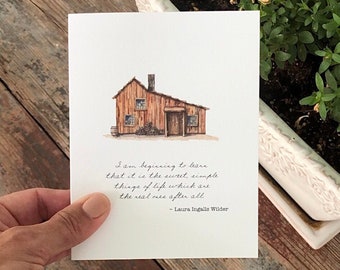 I am beginning to learn
that it is the sweet, simple
things of life which are
the real ones after all.
- Laura Ingalls Wilder